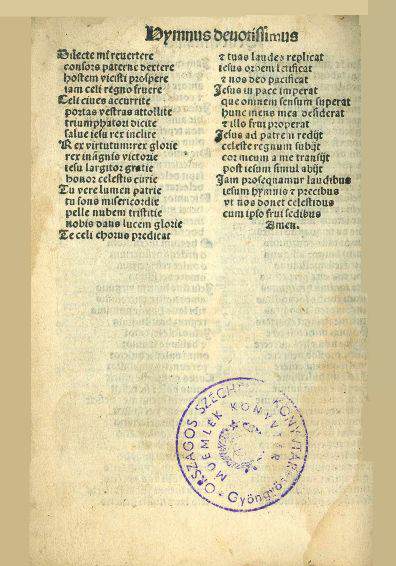 Hymnus deuotissimus
Dilecte mi reuertere
consors paterne dextere
hostem vicisti prospere
iam celi regno fruere
Celi ciues accurrite
portas vestras attollite
triumphatori dicite
salue iesu rex inclite
Rex virtutum rex glorie
rex insignis victorie
iesu largitor gratie
honor celestis curie
Tu vere lumen patrie
tu fons misericordie
pelle nubem tristitie
nobis dans lucem glorie
Te celi chorus predicat
⁊ tuas laudes replicat
iesus orbem letificat
⁊ nos deo pacificat
Jesus in pace imperat
que omnem sensum superat
hunc mens mea desiderat
⁊ illo frui properat
Jesus ad patrem redijt
celeste regnum subijt
cor meum a me transijt
post iesum simul abijt
Jam prosequamur laudibus
iesum hymnis ⁊ precibus
vt nos donet celestibus
cum ipso frui sedibus
Amen.
ORSZÁGOS SZÉCHÉNYI KÖNYVTÁR
MŰEMLÉK KÖNYVTÁR
Gyöngyös